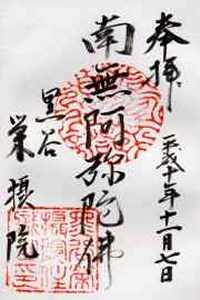 奉拝
平成十年十一月七日
南無阿弥陀佛
黒谷
栄摂院